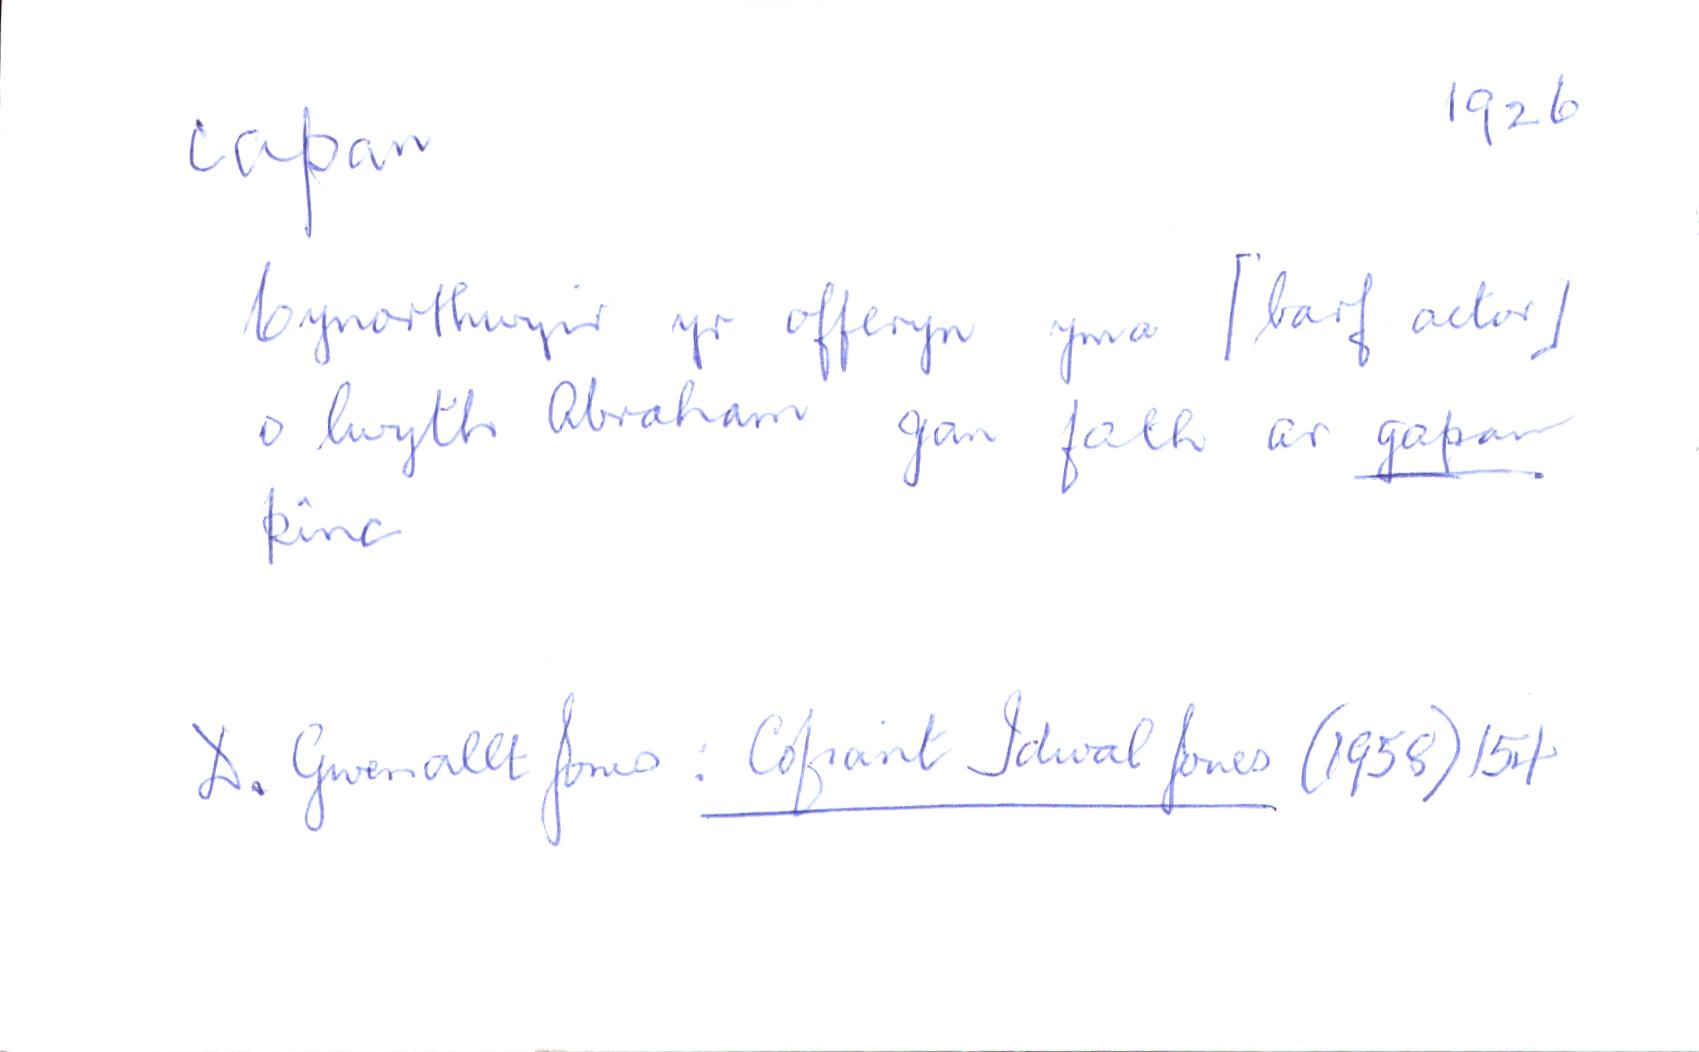 capan
1926
Cynorthwyir yr offeryn yma [barf actor]
o lwyth Abraham gan fath ar gapan
pinc
D. Gwenallt Jones : Cofiant Idwal Jones (1958) 154